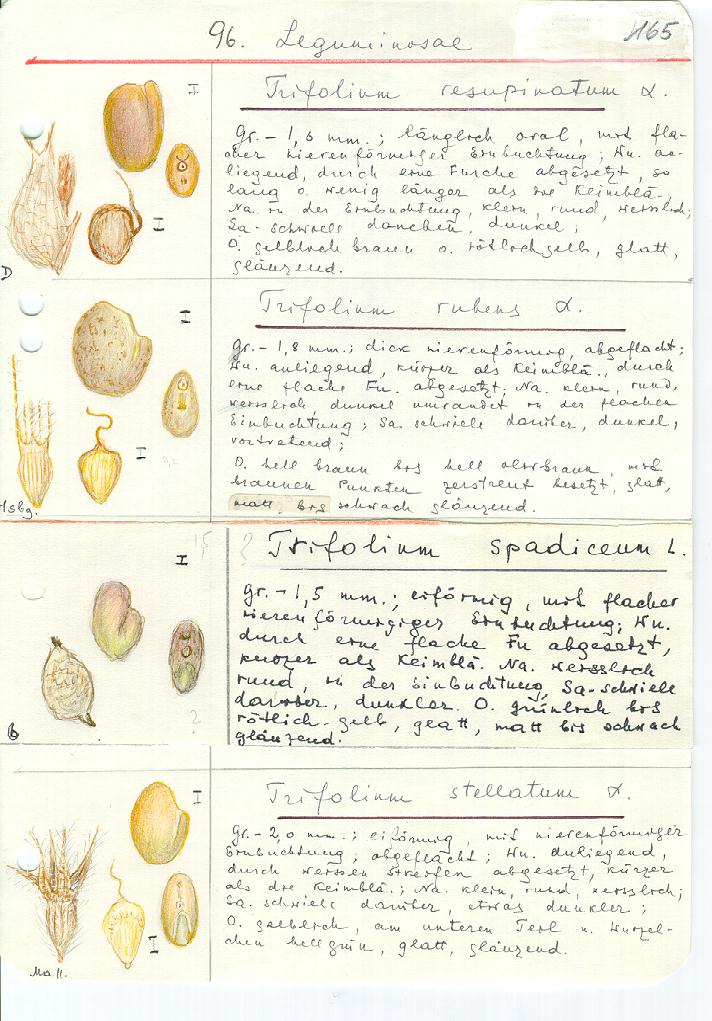 96. Leguminosae
165
Trifolium resupinatum L.
gr. - 1,6 mm.; länglich oval, mit fla-
cher nierenförmiger Einbuchtung; Wu. an-
liegend, durch eine Furche abgesetzt, so
lang o. wenig länger als die Keimblä.
Na. in der Einbuchtung, klein, rund, weisslich;
Sa-schwiele daneben, dunkel;
O. gelblich braun o. rötlichgelb, glatt,
glänzend.
I
I
D
Trifolium rubens L.
gr. - 1,8 mm.; dick nierenförmig, abgeflacht;
Wu. anliegend, kürzer als Keimblä., durch
eine flache Fu. abgesetzt, Na. klein, rund,
weisslich, dunkel umrandet in der flachen
Einbuchtung; Sa. schwiele darüber, dunkel,
vortretend;
O. hell braun bis hell olivbraun, mit
braunen Punkten zerstreut besetzt, glatt,
matt, bis schwach glänzend.
I
I
Hsbg.
? Trifolium spadiceum L.
gr. - 1,5 mm.; eiförmig, mit flacher
nierenförmgiger Einbuchtung; Wu.
durch eine flache Fu abgesetzt,
kürzer als Keimblä. Na. weisslich
rund, in der Einbuchtung, Sa-schwiele
darüber, dunkler. O. grünlich bis
rötlich-gelb, glatt, matt bis schwach
glänzend.
I
?
Trifolium stellatum L.
gr. - 2,0 mm.; eiförmig, mit nierenförmiger
Einbuchtung; abgeflacht; Wu. anliegend,
durch weissen Streifen abgesetzt, kürzer
als die Keimblä.; Na. klein, rund, weisslich;
Sa. schwiele darüber, etwas dunkler;
O. gelblich, am unteren Teil u. Würzel-
chen hellgrün, glatt, glänzend.
I
I
Ma. H.